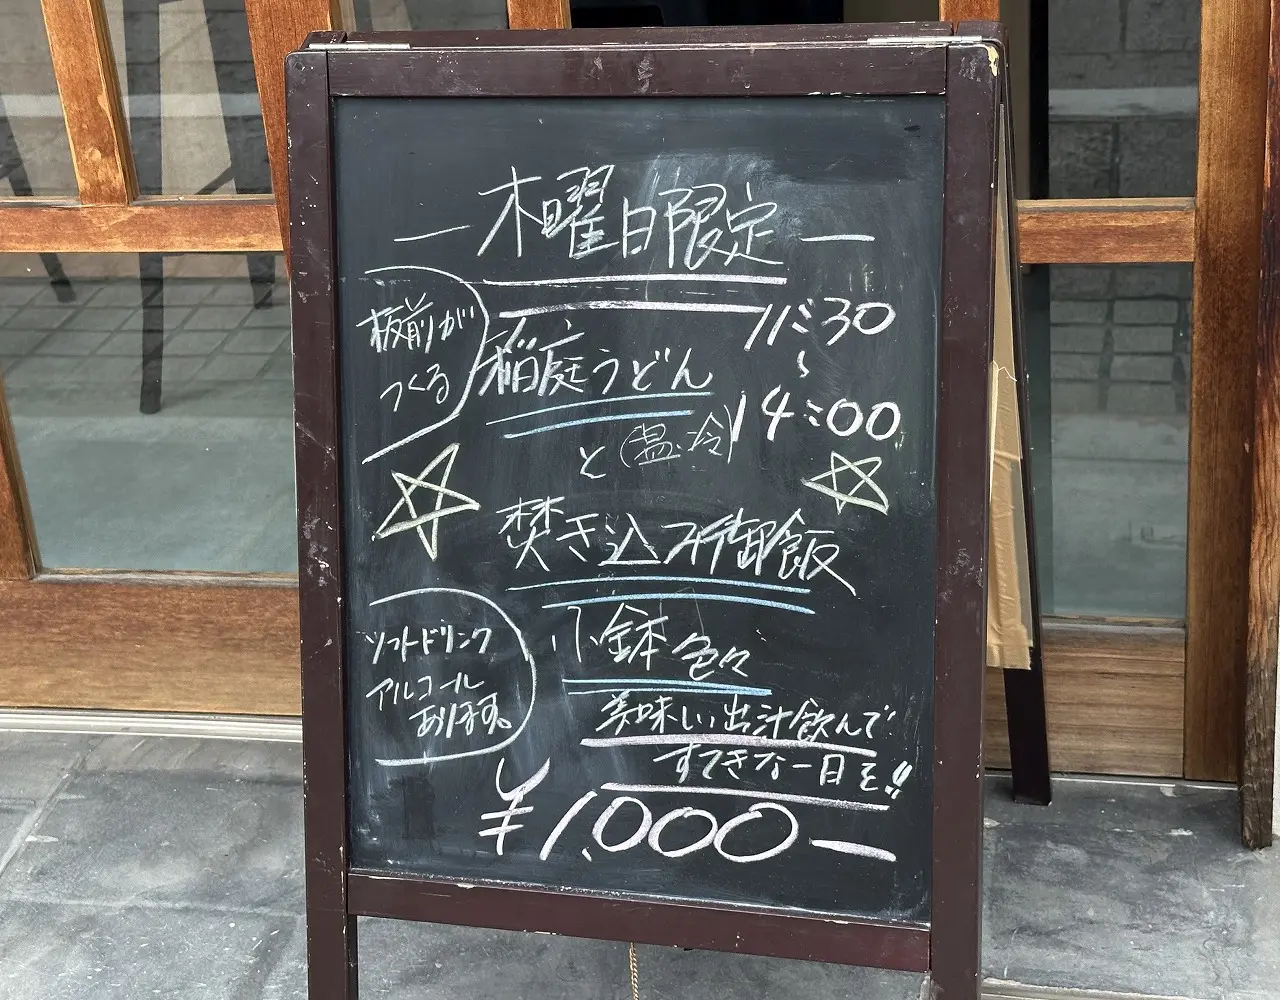 — 木曜日限定 —
板前が
つくる
稲庭うどん
11:30
〜
14:00
と(温、冷)
焚き込み御飯
小鉢色々
ソフトドリンク
アルコール
あります。
美味しい出汁飲んで
すてきな一日を!!
¥1,000—